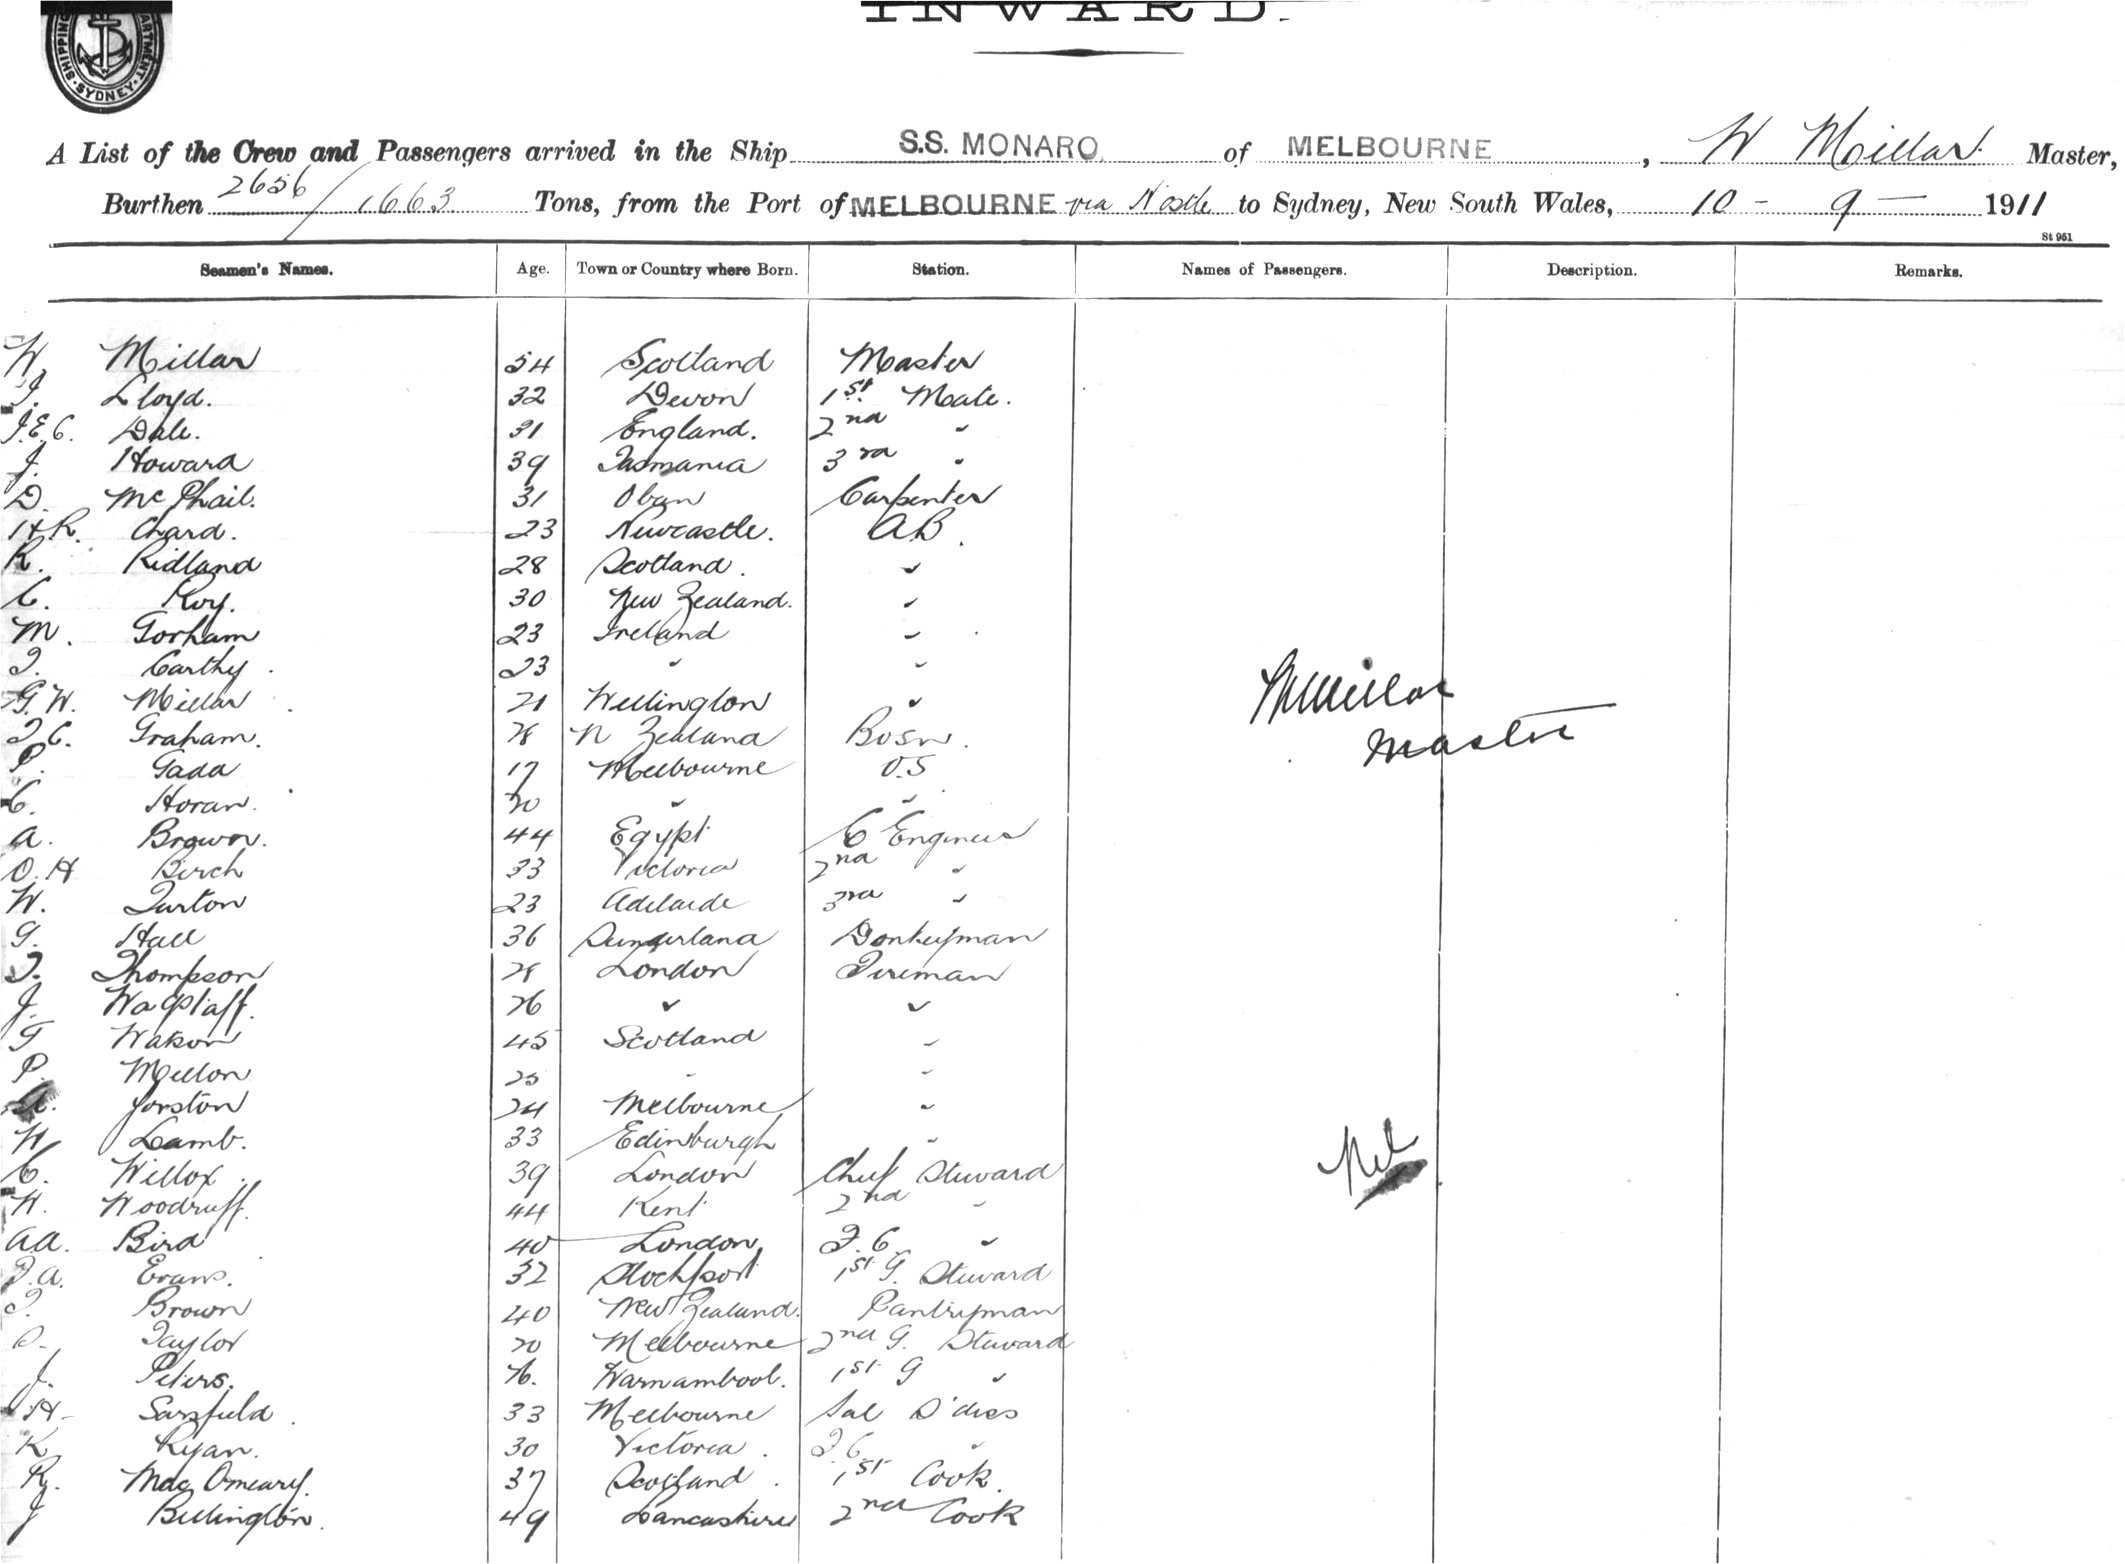 INWARD.
SHIPPING DEPARTMENT. SYDNEY
A List of the Crew and Passengers arrived in the Ship S.S. MONARO of MELBOURNE, W Millar Master,
Burthen 2656 / 1663 Tons, from the Port of MELBOURNE via Ncstle to Sydney, New South Wales, 10 - 9 - 1911
St 951
Seamen's Names. Age. Town or Country where Born. Station. Names of Passengers. Description. Remarks.
W Millar 54 Scotland Master
Lloyd. 32 Devon 1st Mate.
J.E.C. Dale. 31 England. 2nd "
J. Howard 39 Tasmania 3rd "
D. McPhail. 31 Oban Carpenter
H R. Chard. 23 Newcastle. AB.
R. Ridland 28 Scotland. "
C. Roy. 30 New Zealand. "
M. Gorham 23 Ireland "
T. Carthy. 23 " "
G. W. Millar 21 Wellington "
T. C. Graham. 28 N Zealand Bosn.
P. Gada 17 Melbourne O.S
C. Horan. 20 " "
A. Brown. 44 Egypt C Engineer
O. H Birch 33 Victoria 2nd "
W. Turton 23 Adelaide 3rd "
G. Hall 36 Sunderland Donkeyman
T. Thompson 28 London Fireman
J. Wagstaff. 26 " "
F Watson 45 Scotland "
P. Mellon 25 " "
Yorston 24 Melbourne "
W Lamb. 33 Edinburgh "
C. Willox. 39 London Chief Steward
W. Woodruff. 44 Kent 2nd "
A.A. Bird 40 London F.C. "
F.A. Evans. 32 Stockport 1st G. Steward
T. Brown 40 New Zealand. Pantryman
Taylor 20 Melbourne 2nd G. Steward
J. Peters. 26. Warnambool. 1st G "
H. Sarsfield. 33 Melbourne Sal S'dess
K Ryan. 30 Victoria. F.C. "
R. Mac Omeary. 37 Scotland. 1st Cook.
J Billington. 49 Lancashire 2nd Cook
W Millar
Master
Nil